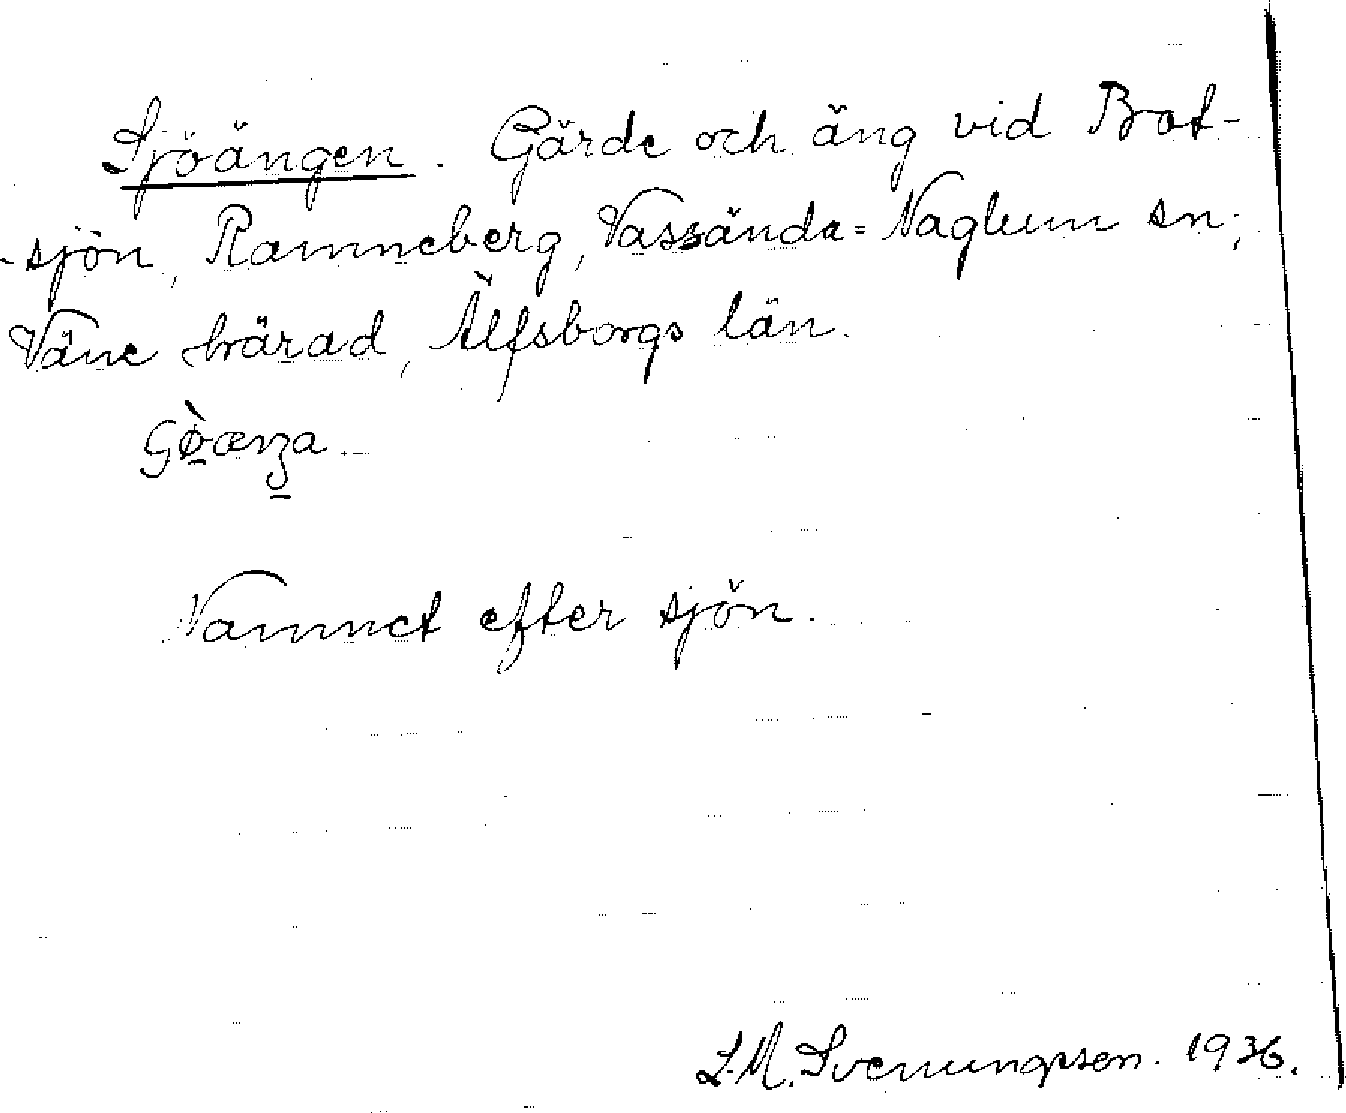 Sjöängen. Gärde och äng vid Brot-
-sjön, Ramneberg, Vassända=Naglum sn;
Väne härad, Älfsborgs län.
Namnet efter sjön.
S.M. Svenungsson. 1936.